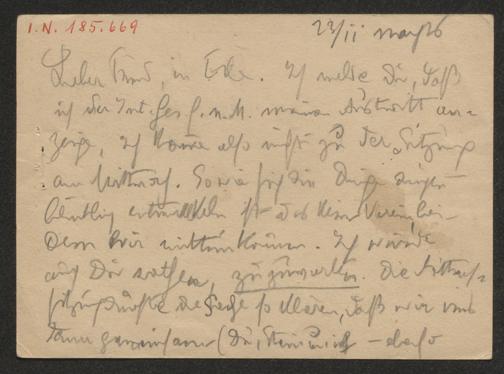 I.N. 185.669
23/II
Lieber Freund, in Eile. Ich melde Dir, daß
ich der Int. Ges. f. n. M. meinen Austritt an-
zeige, ich komme also nicht zu der Sitzung
am Mittwoch. So wie sich die Dinge augen-
blicklich entwickeln ist das kein Verein bei
dem wir mittun können. Ich würde
auch Dir raten, zuzuwarten. Die Mittwoch-
sitzung dürfte die Sache so klären, daß wir uns
dann gemeinsam (Du, – ebenso